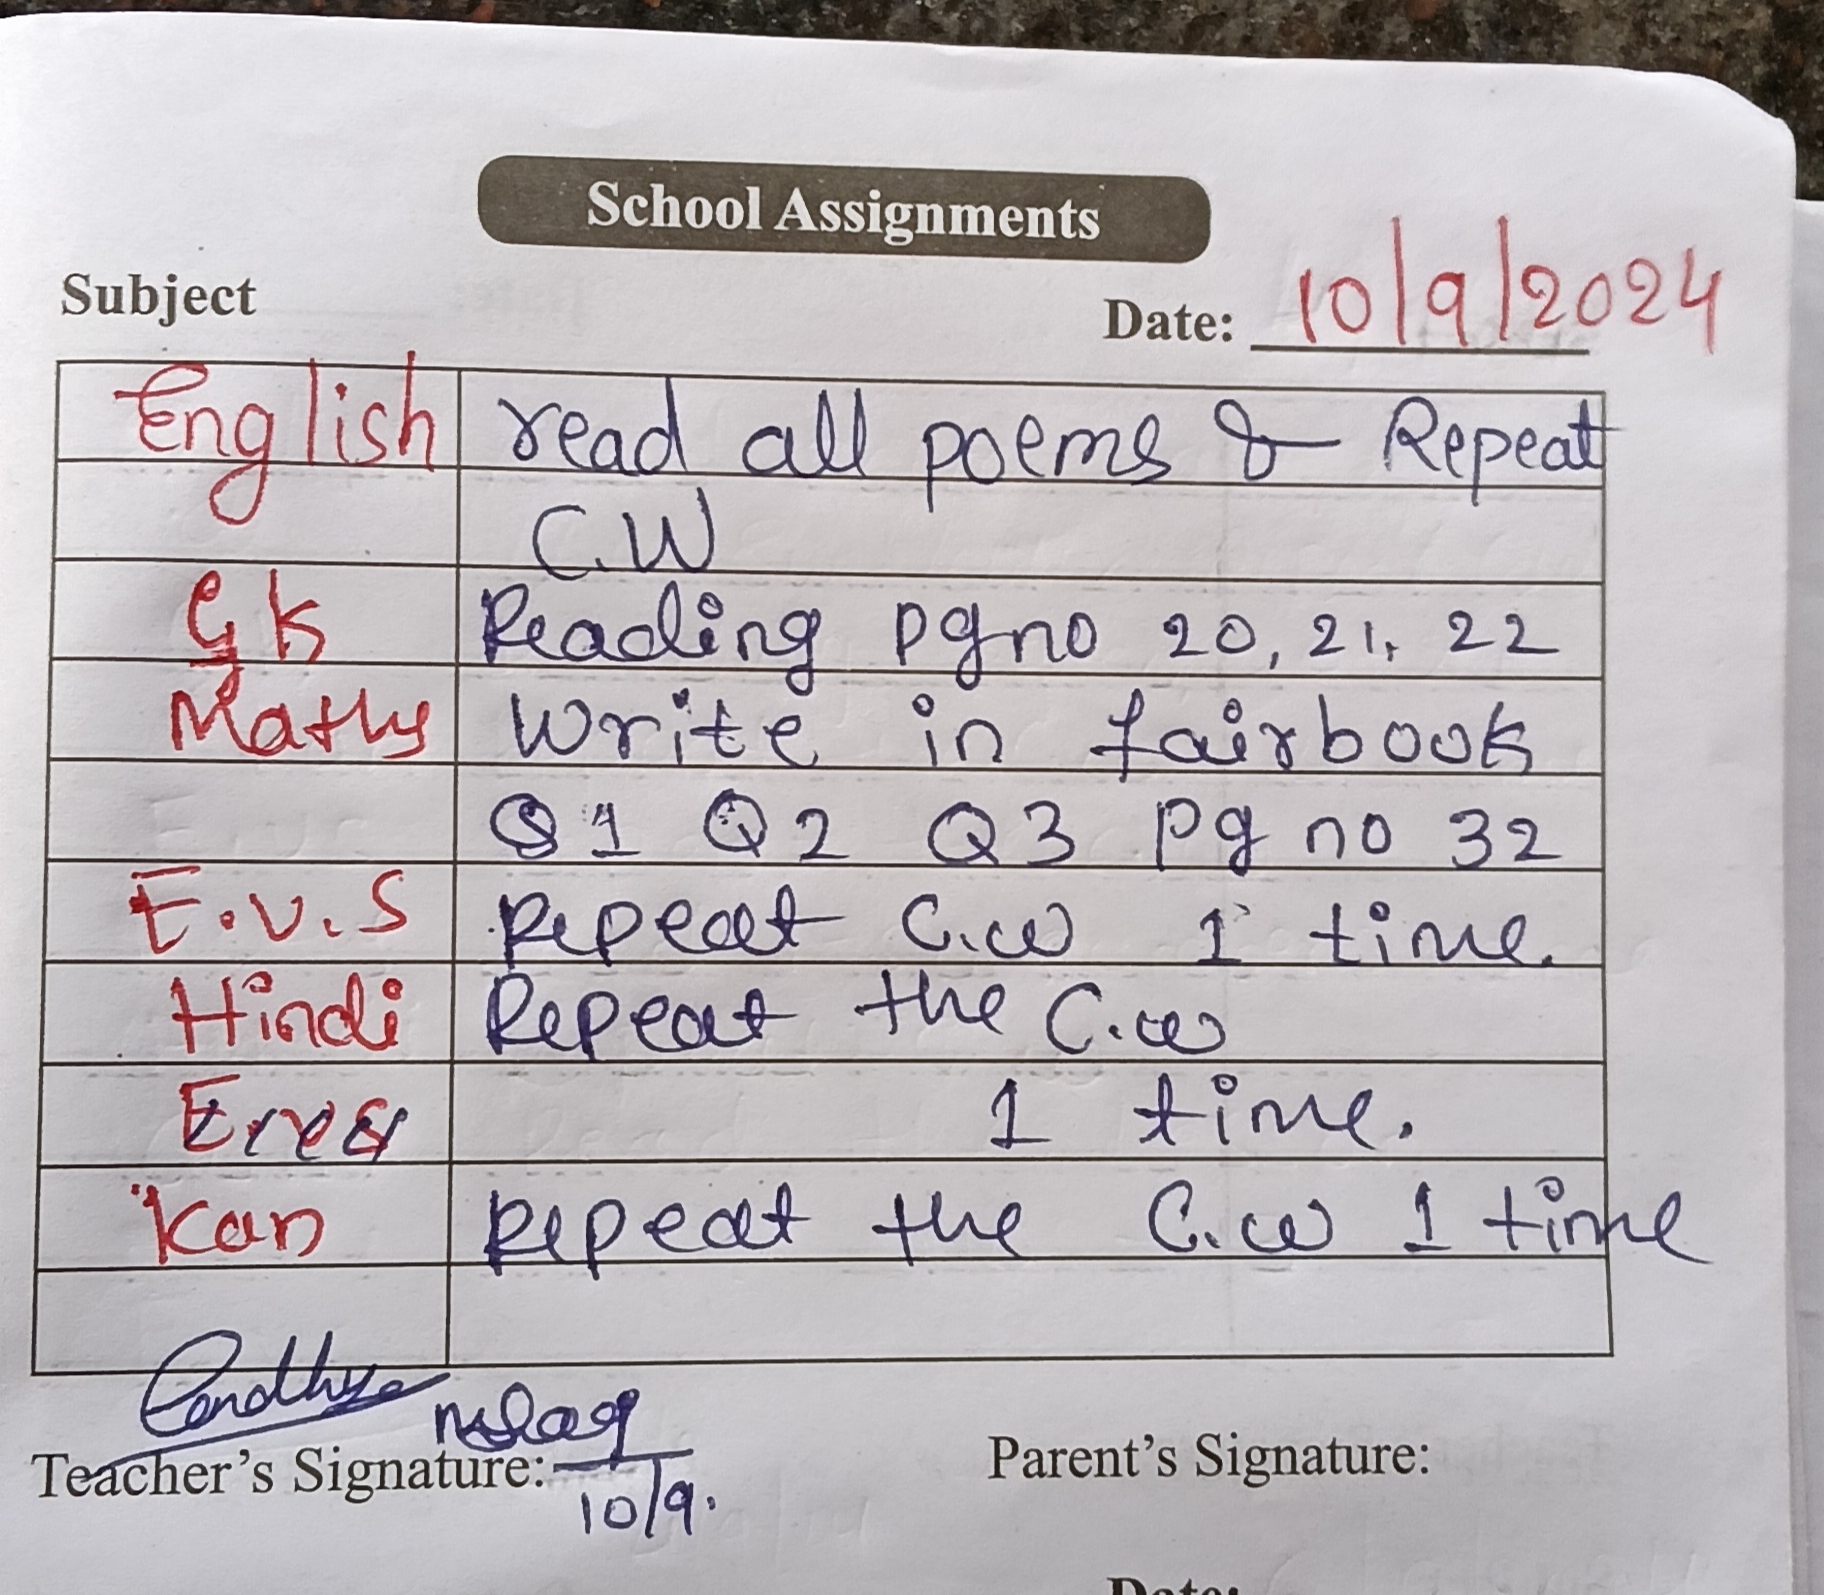 School Assignments
Subject
Date: 10/9/2024
English read all poems & Repeat
C.W
GK Reading pg no 20, 21, 22
Maths Write in fairbook
Q1 Q2 Q3 Pg no 32
E.V.S Repeat C.w 1 time.
Hindi Repeat the C.w
1 time.
Kan Repeat the C.w 1 time
Teacher's Signature:
10/9.
Parent's Signature:
Date: